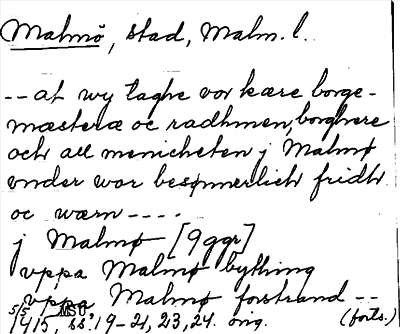 Malmö, stad, Malm. l.
-- at wy taghe vor kære borge-
mæsteræ oc radhmen, borghere
och all menicheten j Malmø
vnder wor besønnerlich fridh
oc wærn ----
j Malmø [9 ggr]
vppa Malmø bything
vppa Malmø forstrand --
5/5 1415, MSU ss. 19-21, 23, 24. orig. (forts.)